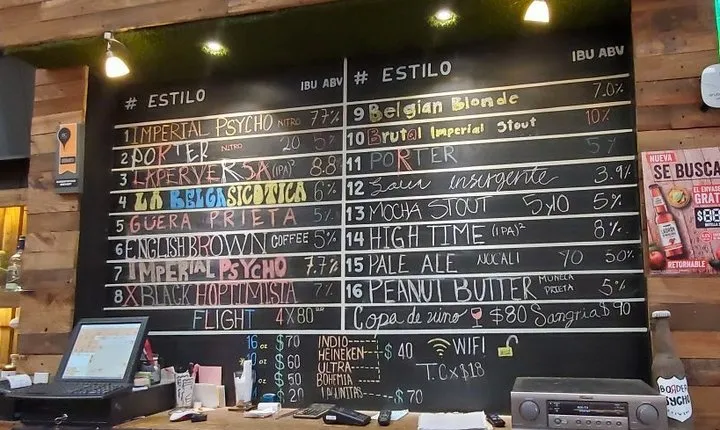 # ESTILO IBU ABV
1 IMPERIAL PSYCHO NITRO 7.7%
2 PORTER NITRO 20 5%
3 LAPERVERSA (IPA)² 8.8
4 LA BELGASICOTICA 6%
5 GUERA PRIETA 5%
6 ENGLISH BROWN COFFEE 5%
7 IMPERIAL PSYCHO 7.7%
8 XBLACK HOPTIMISTA 7%
FLIGHT 4X80
# ESTILO IBU ABV
9 Belgian Blonde 7.0%
10 Brutal Imperial Stout 10%
11 PORTER 5%
12 Sour insurgente 3.9%
13 MOCHA STOUT 5%
14 HIGH TIME (IPA)² 8%
15 PALE ALE
16 PEANUT BUTTER PRIETA 5%
Copa de vino $80 Sangria $90
16 oz $70
$60
oz $50
oz $20
INDIO
HEINEKEN
ULTRA
BOHEMIA
$40
LAGUNITAS $70
WIFI
T.C x $18
NUEVA
SE BUSCA
EL ENVASE
GRATIS
RETORNABLE
BORDER
PSYCHO